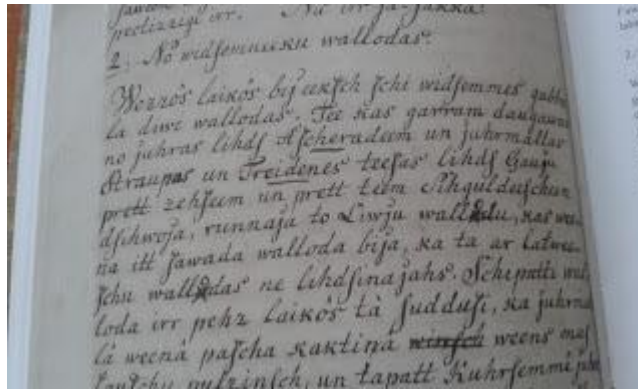 peelizzigi irr. Na irr ja-sakka:
2. No widsemneeku wallodas.
Wezzôs laikôs bij eeksch schi widsemmes gubbe
la diwi wallodas. Tee kas garram daugawai
no juhras lihds Ascheradeem un juhrmallas
Straupas un Treidenes teesas lihds Gauju
prett zehseem un prett teem Sihguldeeschem
dsihwoja, runnaja to Liwju wallodu, kas wee
na itt sawada walloda bija, ka ta ar latwee
schu wallodas ne lihdsinajahs. Schi patti wal
loda irr pehz laikôs tà suddusi, ka juhrma
là weenà pascha kaktinà weens mas
lautschu pulzinsch, un tapatt Kuhrsemmê